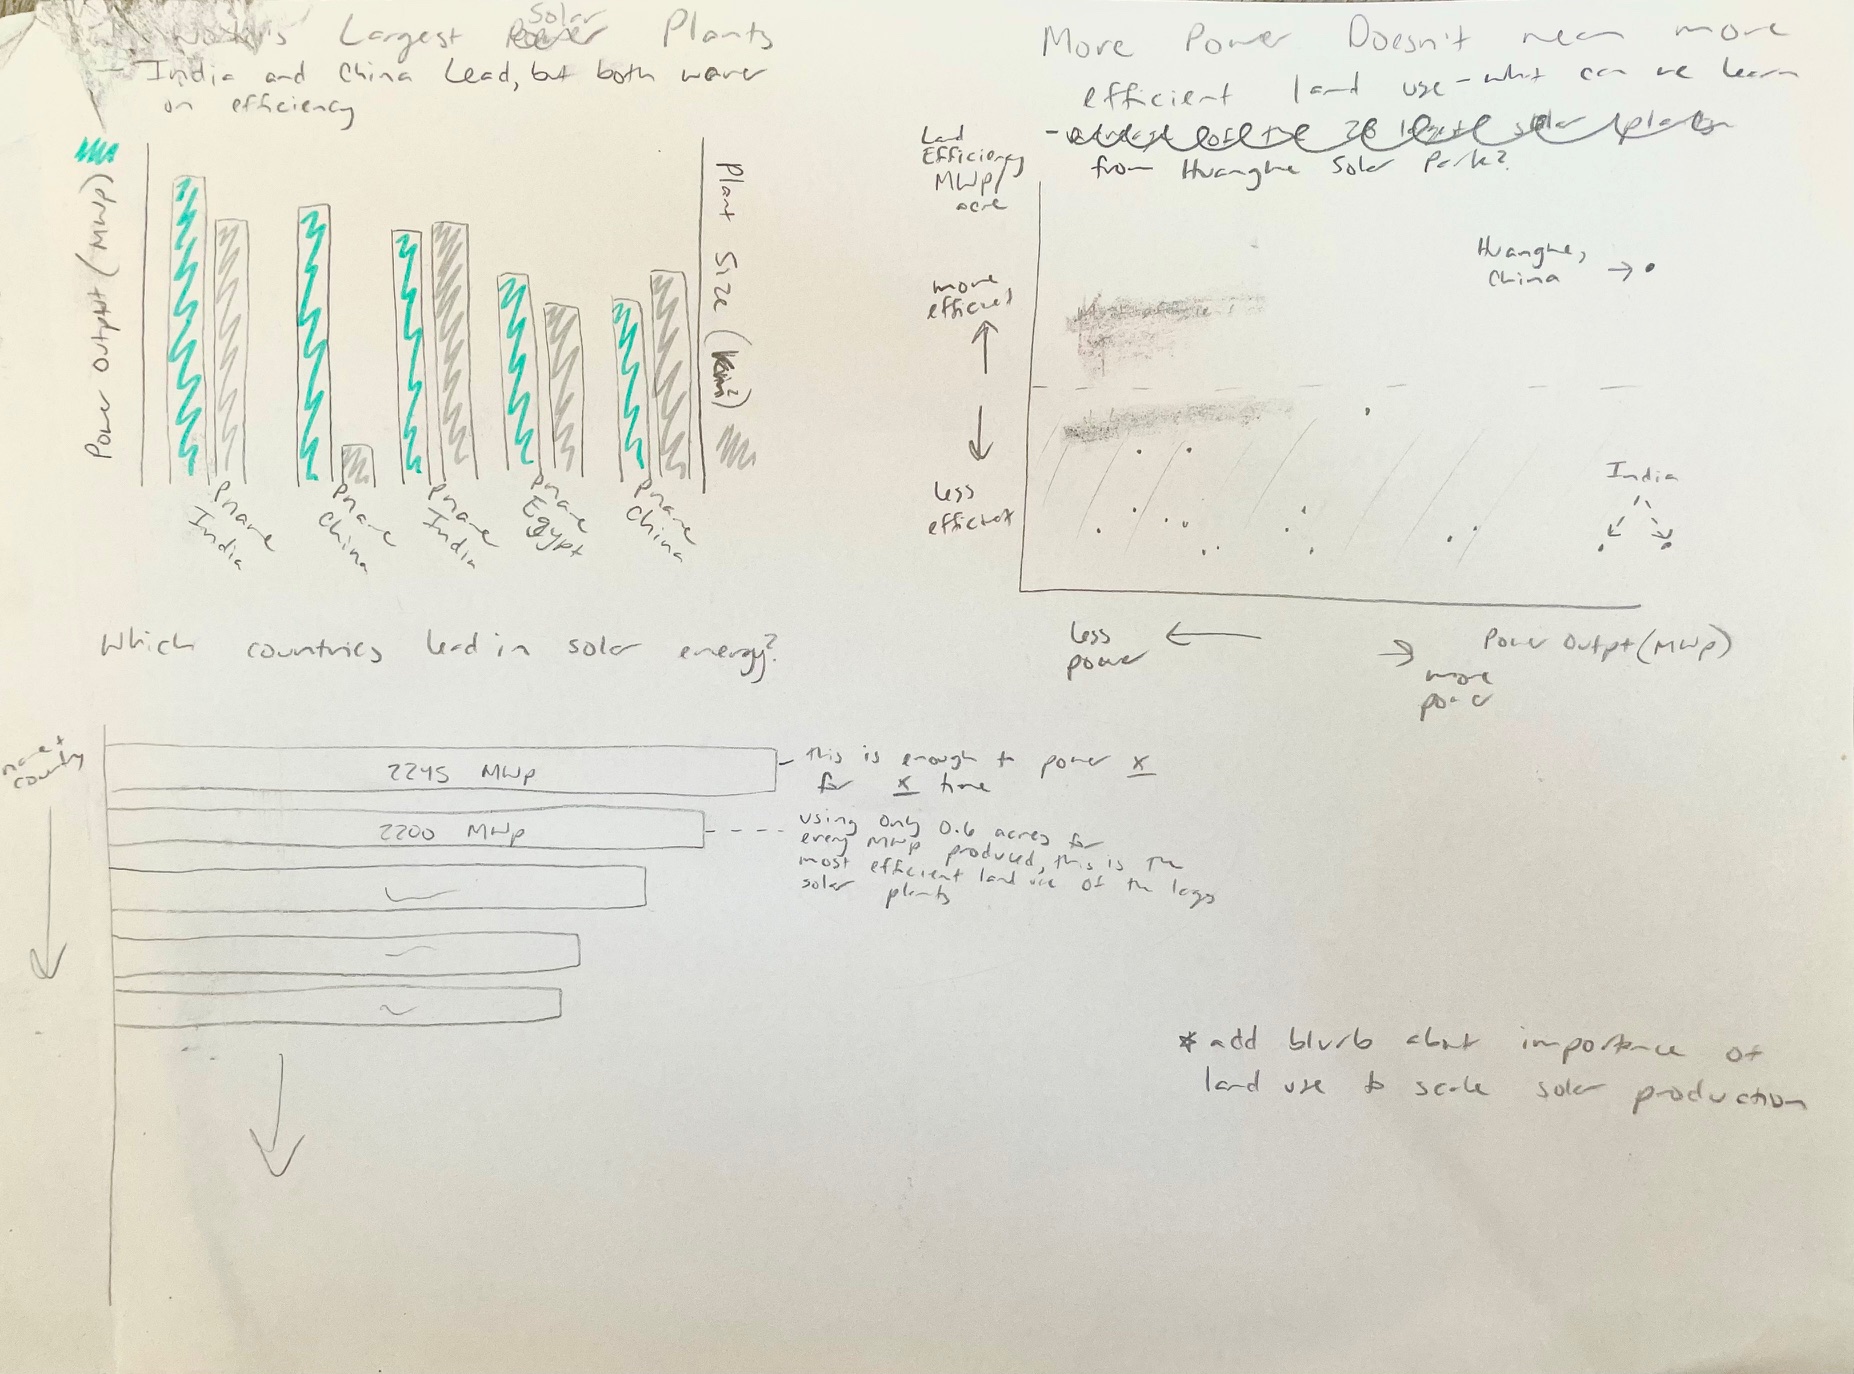 World's Largest Solar Plants
- India and China Lead, but both waver
on efficiency
Power Output (MWp)
Plant Size (km²)
Pname
India
Pname
China
Pname
India
Pname
Egypt
Pname
China
More Power Doesn't mean more
efficient land use - what can we learn
from Huanghe Solar Park?
Land
Efficiency
MWp/
acre
more
efficient
less
efficient
Huanghe,
China
India
less
power
more
power
Power Output (MWp)
Which countries lead in solar energy?
name +
country
2245 MWp
this is enough to power x
for x time
2200 MWp
using only 0.6 acres for
every MWp produced, this is the
most efficient land use of the
solar plants
* add blurb about importance of
land use to scale solar production